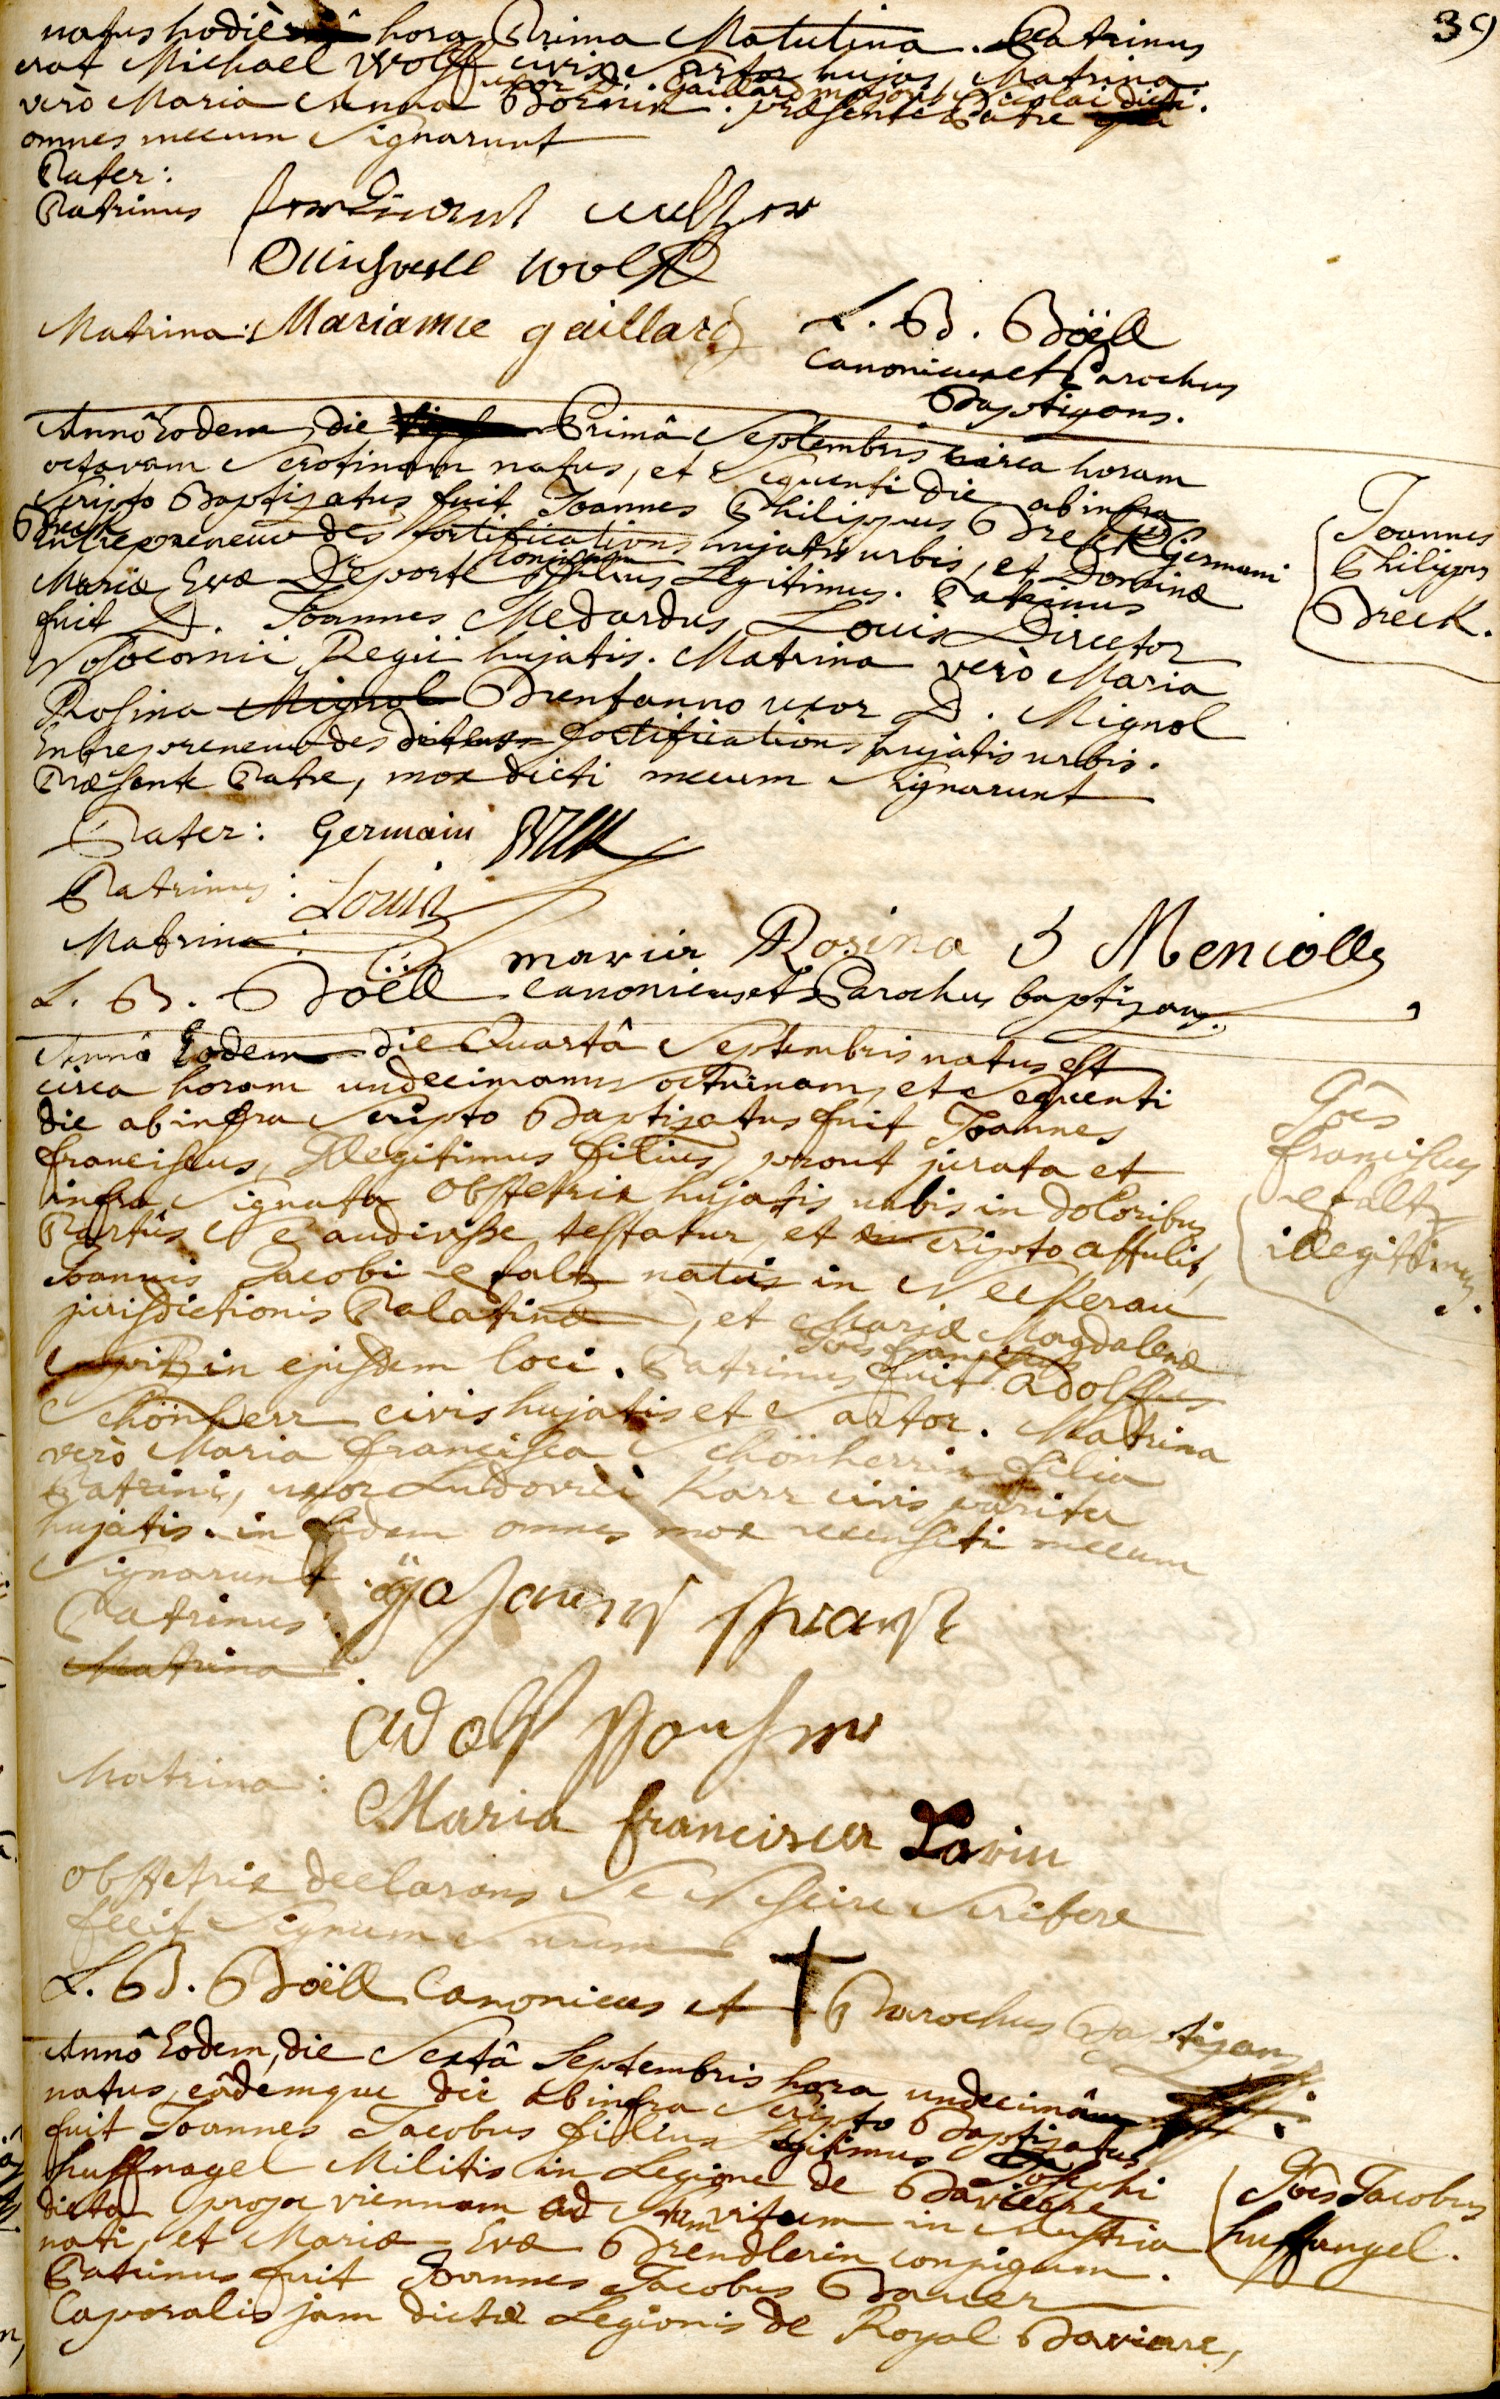 39
natus hodiè hora Prima Matutina. Patrinus
erat Michael Wolff civis Sartor hujas, Matrina
uxor D. Gaillard majoris Nicolai dicti.
verò Maria Anna Bornin. præsente Patre
omnes mecum Signarunt
Pater:
Patrinus
Wolff
Matrina: Marianne gaillard
L. B. Böell
Canonicus et Parochus
Baptizans.
Annô Eodem, die Primâ Septembris circa horam
octavam Serotinam natus, et Sequenti die ab infra
Scripto Baptizatus fuit Joannes Philippus Breck Germani
Breck
Entrepreneur des fortifications hujatis urbis, et Dominæ
Mariæ Evæ Deporte conjugum filius Legitimus. Patrinus
fuit D. Joannes Medardus Louis Director
Nosocomii Regii hujatis. Matrina verò Maria
Rosina Mignol Brentanno uxor D. Mignol
Entrepreneur des fortifications hujatis urbis.
Præsente Patre, mox dicti mecum Signarunt
Joannes
Philippus
Breck.
Pater: Germain Breck
Patrinus: Louis
Matrina: maria Rosina
L. B. Böell Canonicus et Parochus baptizans.
Annô Eodem die Quartâ Septembris natus est
circa horam undecimam nocturnam, et Sequenti
die ab infra Scripto Baptizatus fuit Joannes
franciscus, Illegitimus filius, prout jurata et
infra Signata Obstetrix hujatis urbis in doloribus
Partûs Se audivisse testatur, et in Scripto attulit,
Joannis Jacobi natus in
jurisdictionis Palatinæ, et Mariæ Magdalenæ
in ejusdem loci. Patrinus fuit Joës franciscus adolffus
Schönherr civis hujatis et Sartor. Matrina
verò Maria francisca Schönherrin filia
Patrini, uxor Ludovici Karr civis pariter
hujatis. in fidem omnes mox recensiti mecum
Signarunt
Joës
franciscus
illegittimus.
Patrinus:
Matrina
adolf
Matrina:
Maria francisca
Obstetrix declarans Se Nescire Scribere
fecit Signum Suum
L. B. Böell Canonicus et † Parochus Baptizans
Annô Eodem, die Sextâ Septembris hora undecimâ
natus, eâdemque die ab infra Scripto Baptizatus
fuit Joannes Jacobus filius Legitimus Josephi
huffnagel Militis in Legione de Baviere
dicta prope viennam ad Sum vitum in Austria
nati, et Mariæ Evæ Brendlerin conjugum.
Patrinus fuit Joannes Jacobus Bauer
Caporalis jam dictæ Legionis de Royal Baviere,
Joës Jacobus
huffnagel.